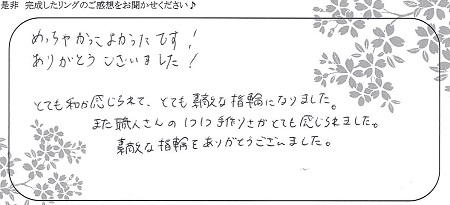 是非 完成したリングのご感想をお聞かせください♪
めっちゃかっこよかったです!
ありがとうございました!
とても和が感じられて、とても素敵な指輪になりました。
また職人さんの1つ1つ手作りさがとても感じられました。
素敵な指輪をありがとうございました。